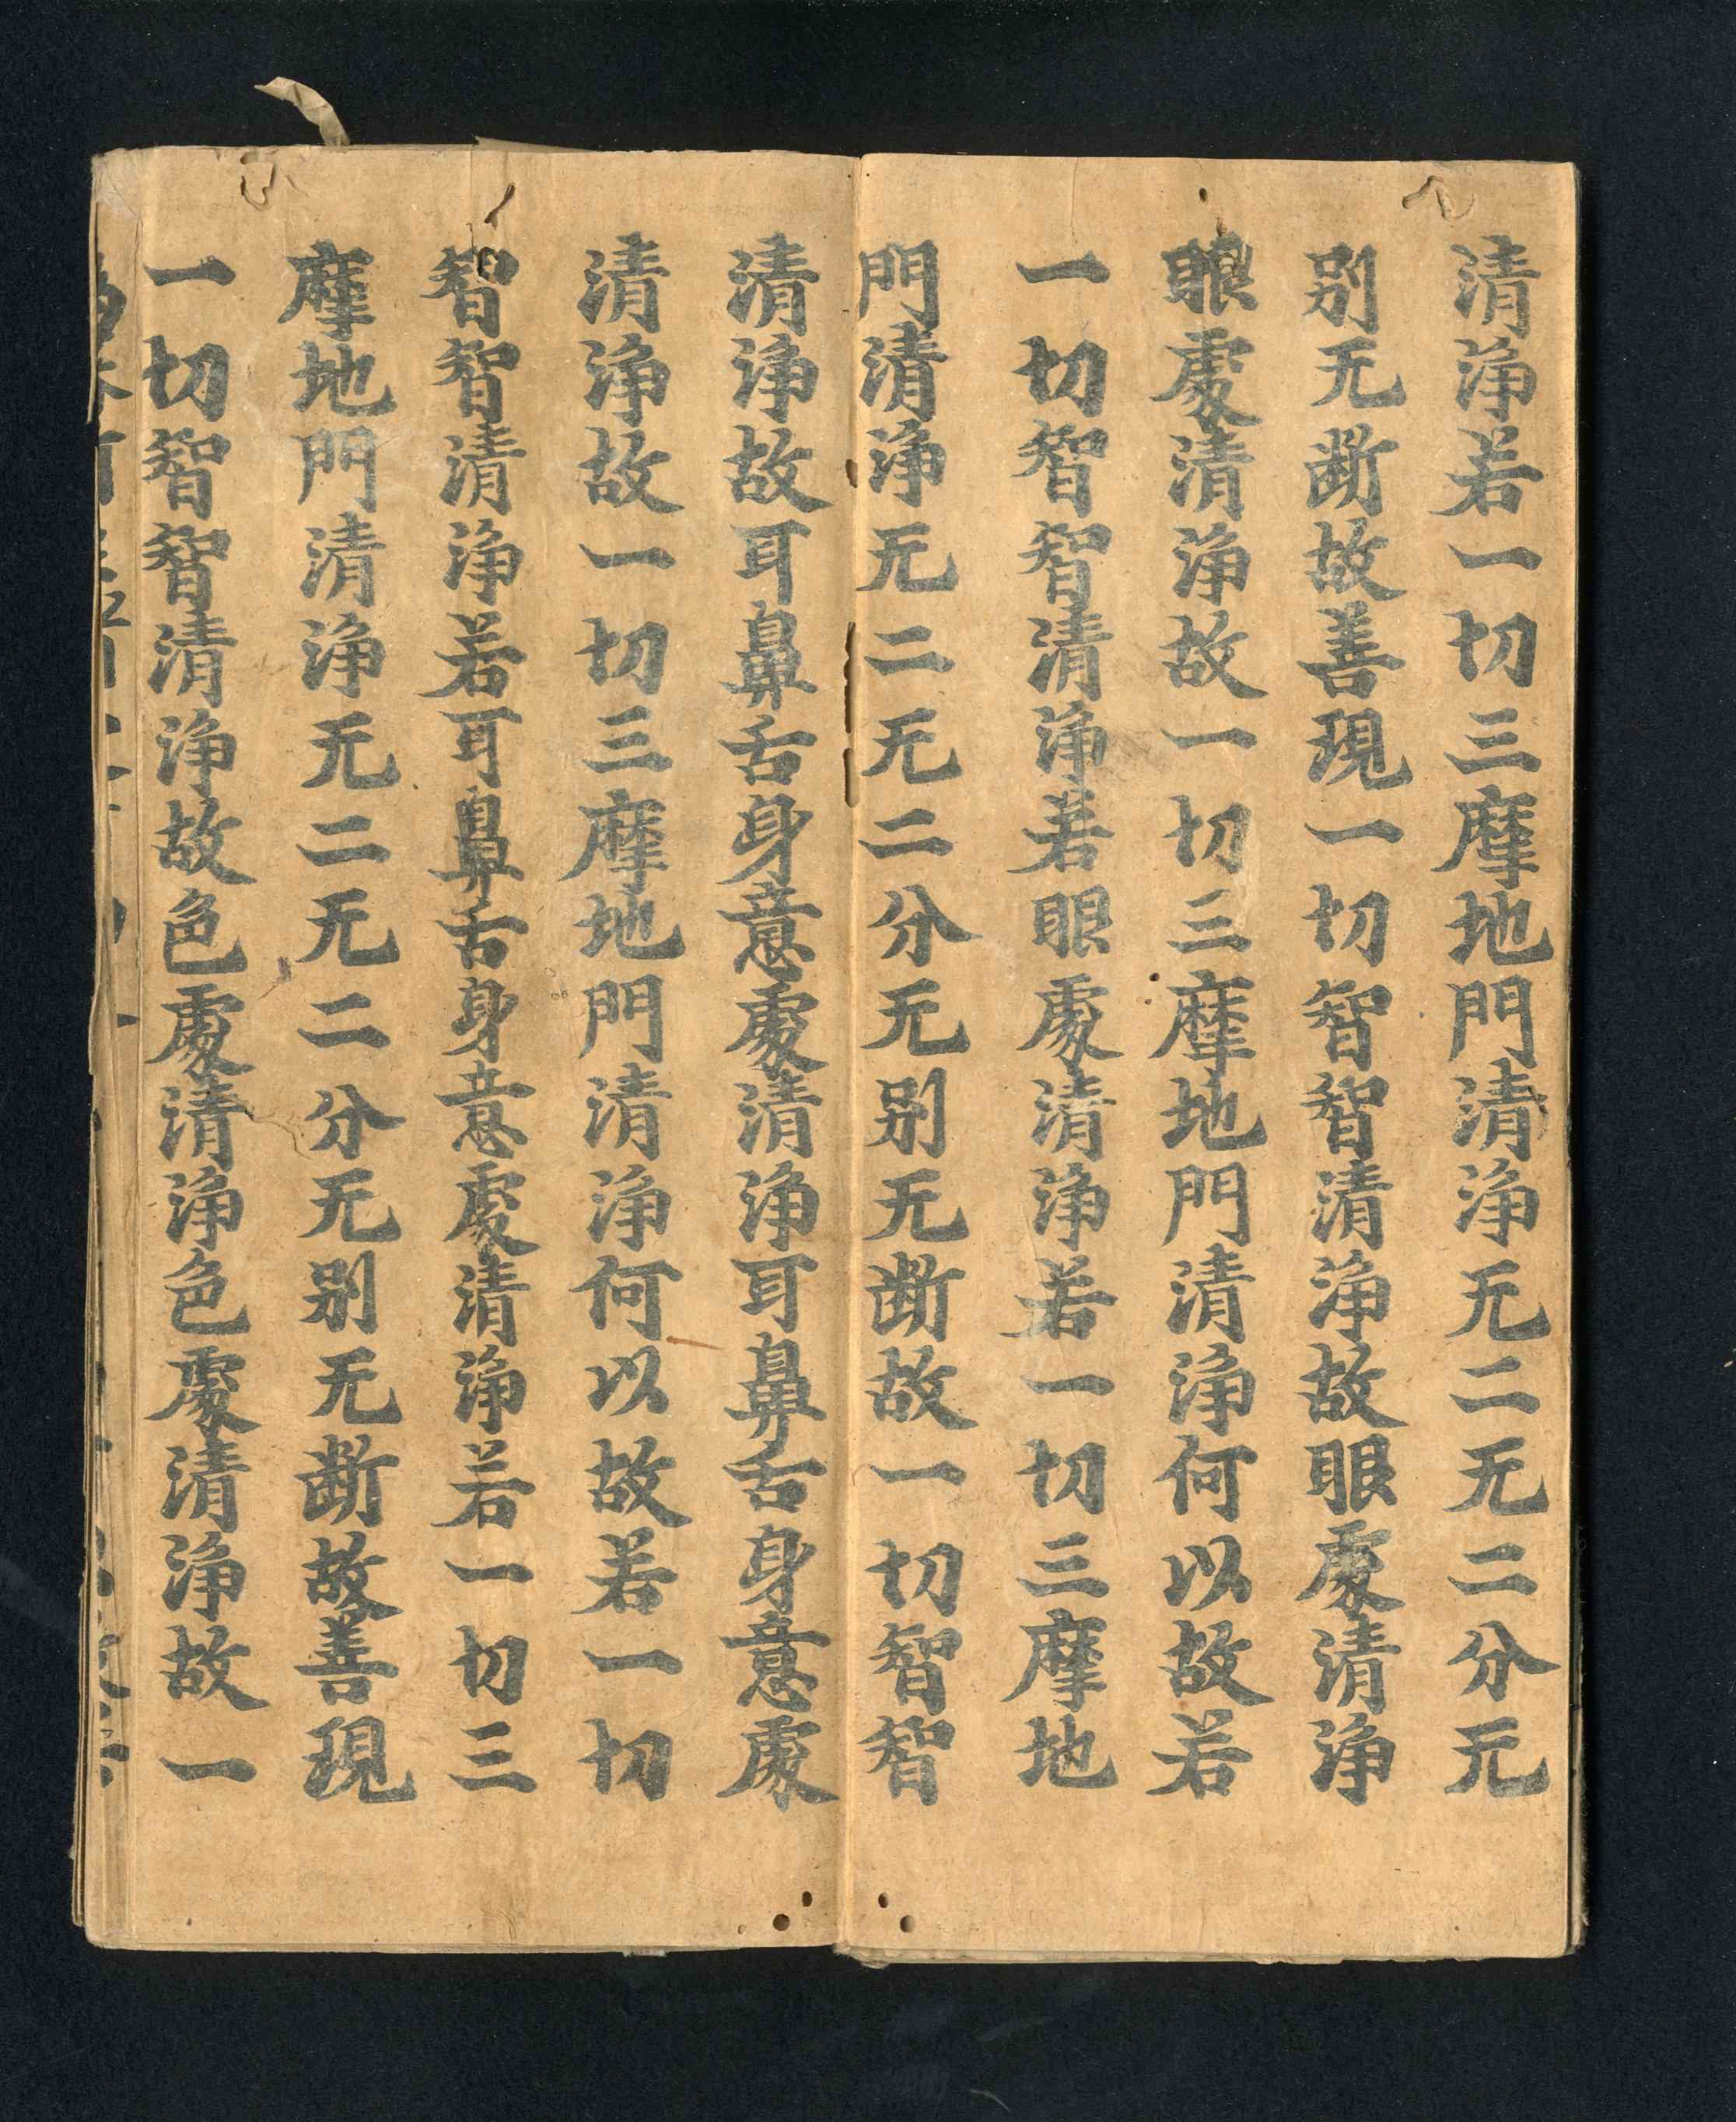 清浄若一切三摩地門清浄无二无二分无
别无断故善現一切智智清浄故眼處清浄
眼處清浄故一切三摩地門清浄何以故若
一切智智清浄若眼處清浄若一切三摩地
門清浄无二无二分无别无断故一切智智
清浄故耳鼻舌身意處清浄耳鼻舌身意處
清浄故一切三摩地門清浄何以故若一切
智智清浄若耳鼻舌身意處清浄若一切三
摩地門清浄无二无二分无别无断故善現
一切智智清浄故色處清浄色處清浄故一